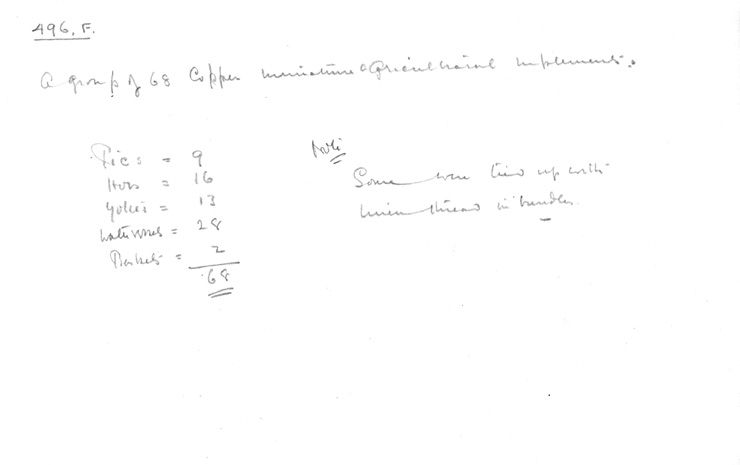 496, F.
A group of 68 Copper miniature agricultural implements.
Pics = 9
Hoes = 16
Yokes = 13
= 28
Baskets = 2
68
Note
Some were tied up with
linen thread in bundles.